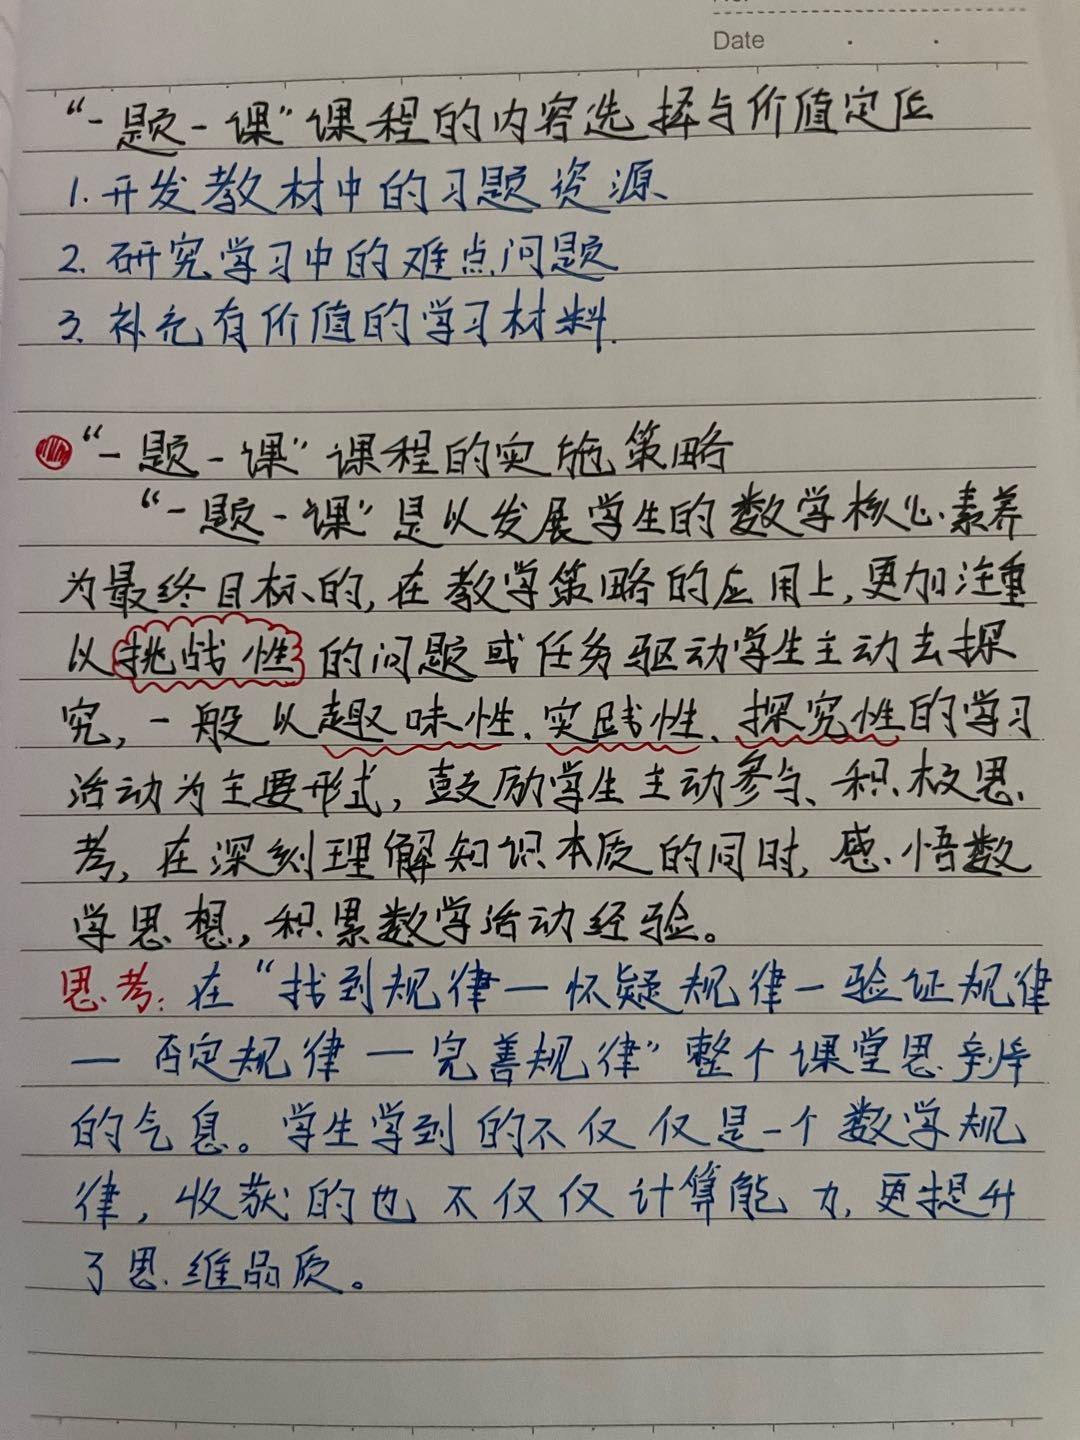 Date
“一题一课”课程的内容选择与价值定位
1.开发教材中的习题资源
2.研究学习中的难点问题
3.补充有价值的学习材料.
“一题一课”课程的实施策略
“一题一课”是以发展学生的数学核心素养
为最终目标的,在教学策略的应用上,更加注重
以挑战性的问题或任务驱动学生主动去探
究,一般以趣味性、实践性、探究性的学习
活动为主要形式,鼓励学生主动参与、积极思
考,在深刻理解知识本质的同时,感悟数
学思想,积累数学活动经验。
思考:在“找到规律—怀疑规律—验证规律
—否定规律—完善规律”整个课堂思
的气息。学生学到的不仅仅是一个数学规
律,收获的也不仅仅计算能力,更提升
了思维品质。